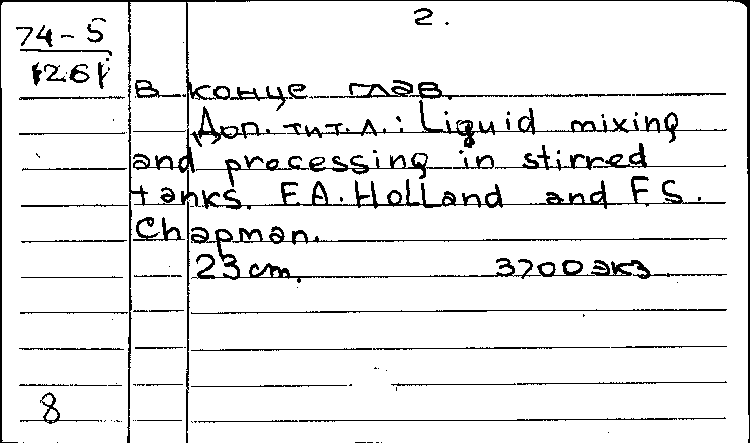 2.
74-5
1261
в конце глав.
Доп. тит. л.: Liquid mixing
and processing in stirred
tanks. F.A. Holland and F.S.
Chapman.
23 cm. 3700 экз
8